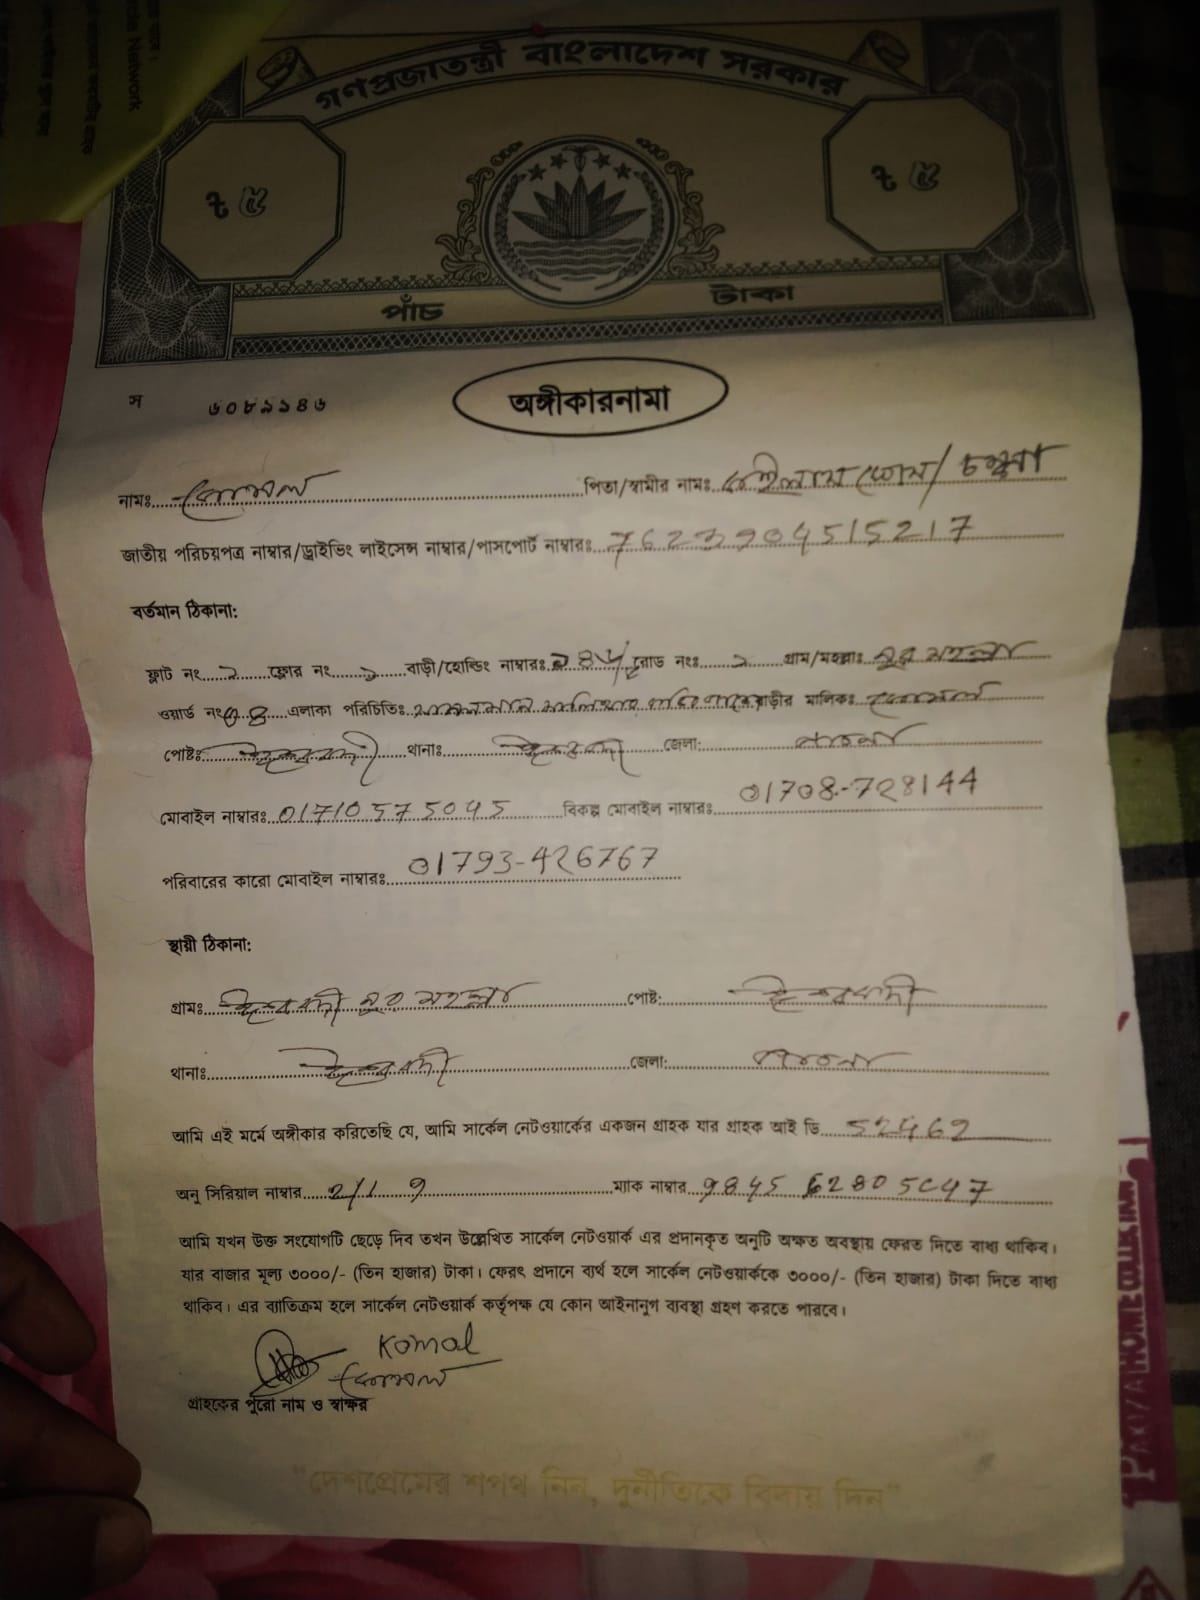 গণপ্রজাতন্ত্রী বাংলাদেশ সরকার
৳ ৫ ৳ ৫
পাঁচ টাকা
স ৬০৮৯১৪৬
অঙ্গীকারনামা
নামঃ কোমল পিতা/স্বামীর নামঃ
জাতীয় পরিচয়পত্র নাম্বার/ড্রাইভিং লাইসেন্স নাম্বার/পাসপোর্ট নাম্বারঃ 7623904515217
বর্তমান ঠিকানা:
ফ্লাট নং ২ ফ্লোর নং ১ বাড়ী/হোল্ডিং নাম্বারঃ রোড নং ২ গ্রাম/মহল্লাঃ নুর মহল্লা
ওয়ার্ড নং 08 এলাকা পরিচিতিঃ বাড়ীর মালিকঃ কোমল
পোষ্টঃ ঈশ্বরদী থানাঃ ঈশ্বরদী জেলা: পাবনা
মোবাইল নাম্বারঃ 01710575045 বিকল্প মোবাইল নাম্বারঃ 01708-728144
পরিবারের কারো মোবাইল নাম্বারঃ 01793-426767
স্থায়ী ঠিকানা:
গ্রামঃ ঈশ্বরদী নুর মহল্লা পোষ্ট: ঈশ্বরদী
থানাঃ ঈশ্বরদী জেলা: পাবনা
আমি এই মর্মে অঙ্গীকার করিতেছি যে, আমি সার্কেল নেটওয়ার্কের একজন গ্রাহক যার গ্রাহক আই ডি 52462
অনু সিরিয়াল নাম্বার 2/1 9 ম্যাক নাম্বার 9845 62805C47
আমি যখন উক্ত সংযোগটি ছেড়ে দিব তখন উল্লেখিত সার্কেল নেটওয়ার্ক এর প্রদানকৃত অনুটি অক্ষত অবস্থায় ফেরত দিতে বাধ্য থাকিব।
যার বাজার মূল্য ৩০০০/- (তিন হাজার) টাকা। ফেরৎ প্রদানে ব্যর্থ হলে সার্কেল নেটওয়ার্ককে ৩০০০/- (তিন হাজার) টাকা দিতে বাধ্য
থাকিব। এর ব্যতিক্রম হলে সার্কেল নেটওয়ার্ক কর্তৃপক্ষ যে কোন আইনানুগ ব্যবস্থা গ্রহণ করতে পারবে।
Komal
কোমল
গ্রাহকের পুরো নাম ও স্বাক্ষর
"দেশপ্রেমের শপথ নিন, দুর্নীতিকে বিদায় দিন"